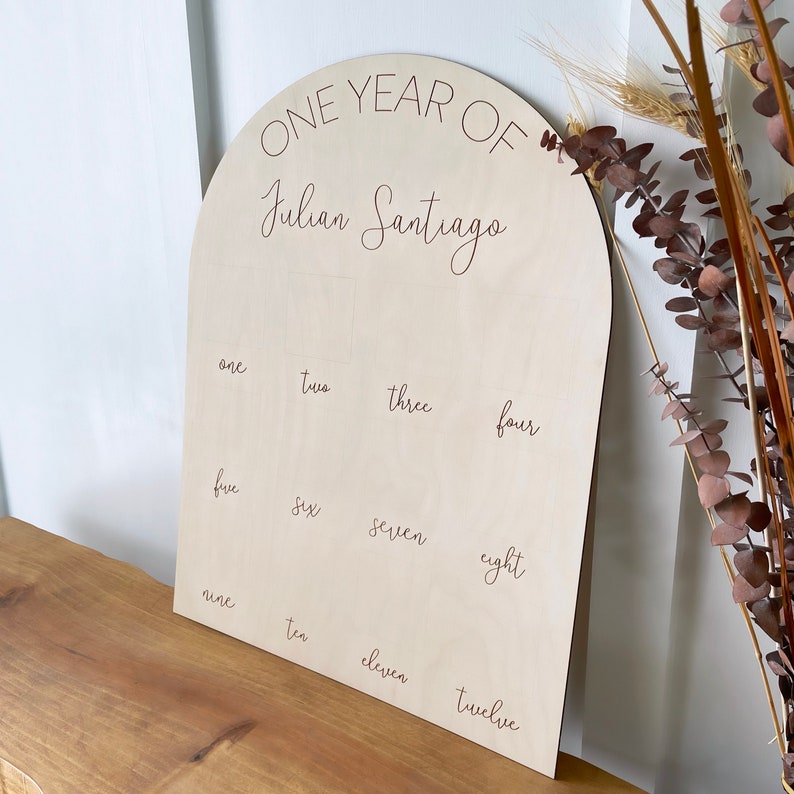 ONE YEAR OF
Julian Santiago
one two three four
five six seven eight
nine ten eleven twelve